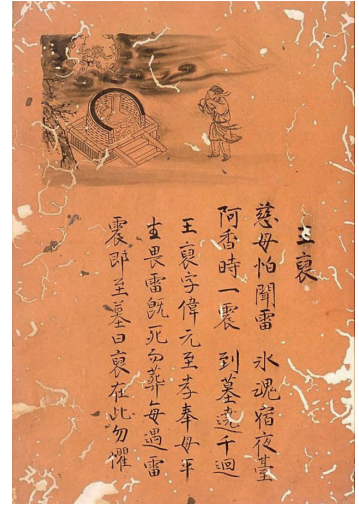 王裒
慈母怕聞雷 氷魂宿夜臺
阿香時一震 到墓遶千迴
王裒字偉元至孝奉母平
生畏雷既死而葬每遇雷
震即至墓曰裒在此勿懼